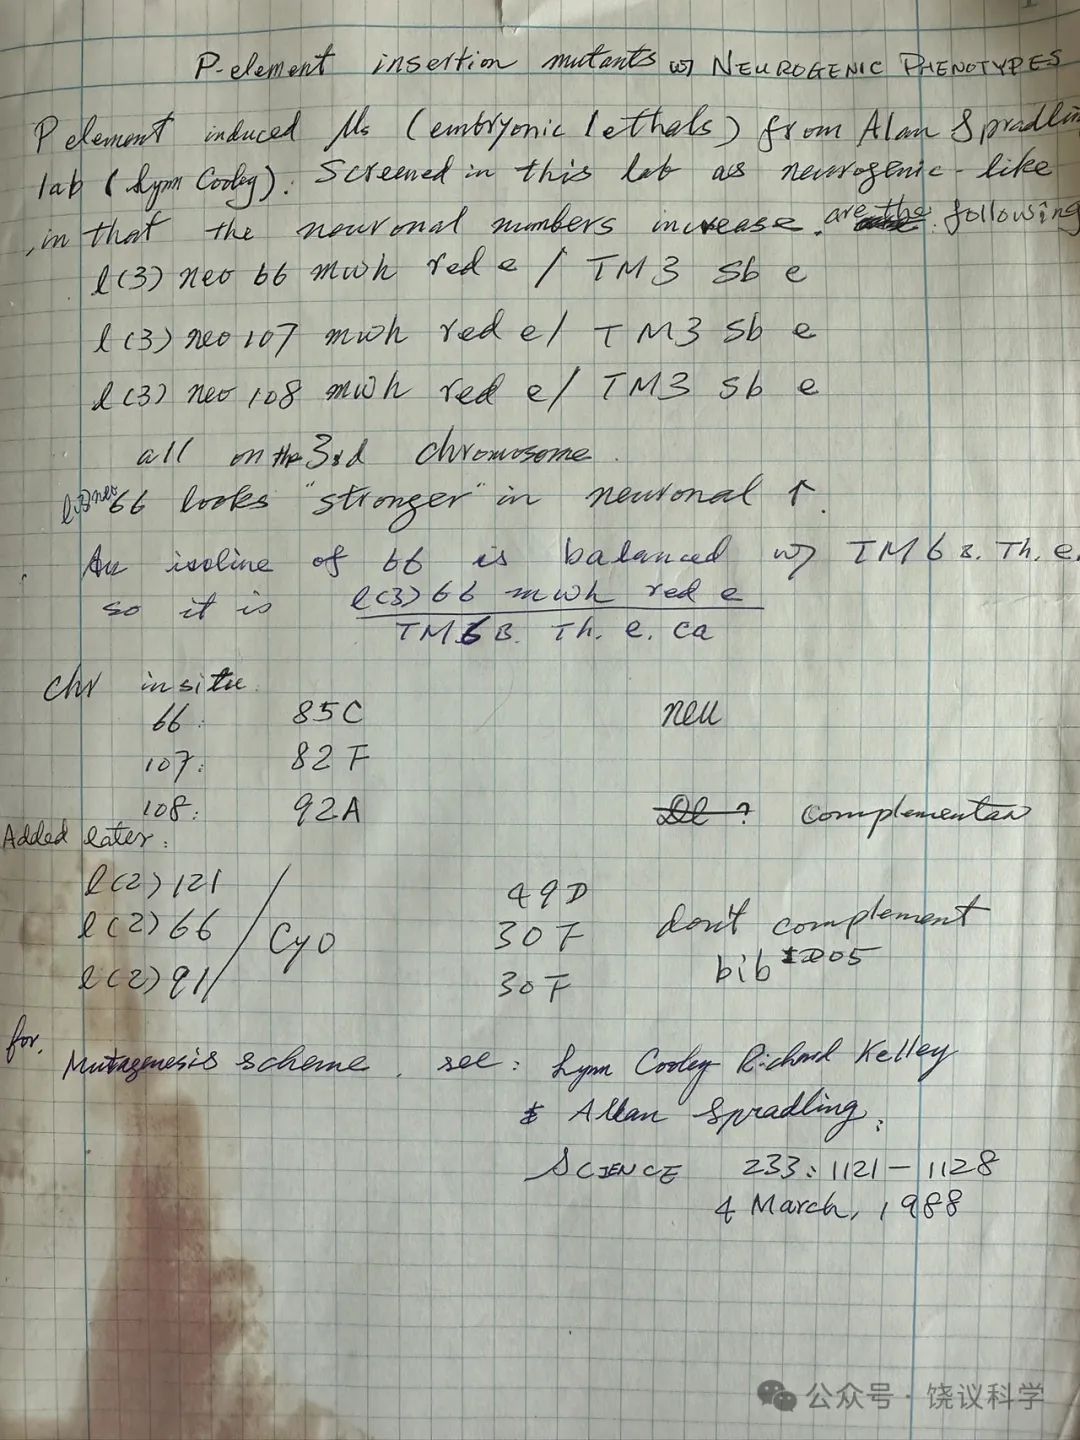 P-element insertion mutants w/ NEUROGENIC PHENOTYPES
P element induced Ms (embryonic lethals) from Alan Spradling
lab (Lynn Cooley). Screened in this lab as neurogenic-like
in that the neuronal numbers increase. are the following
l(3) neo 66 mwh red e / TM3 Sb e
l(3) neo 107 mwh red e / TM3 Sb e
l(3) neo 108 mwh red e / TM3 Sb e
all on the 3rd chromosome.
l(3)neo66 looks "stronger" in neuronal ↑.
An isoline of 66 is balanced w/ TM6B. Th. e.
so it is l(3)66 mwh red e
TM6B. Th. e. ca
Chr in situ
66: 85C neu
107: 82F
108: 92A Dl ? complementar
Added later:
l(2)121 49D
l(2)66 / CyO 30F don't complement
l(2)91 30F bib ID05
for Mutagenesis scheme, see: Lynn Cooley Richard Kelley
& Allan Spradling,
SCIENCE 233: 1121-1128
4 March, 1988
公众号·饶议科学